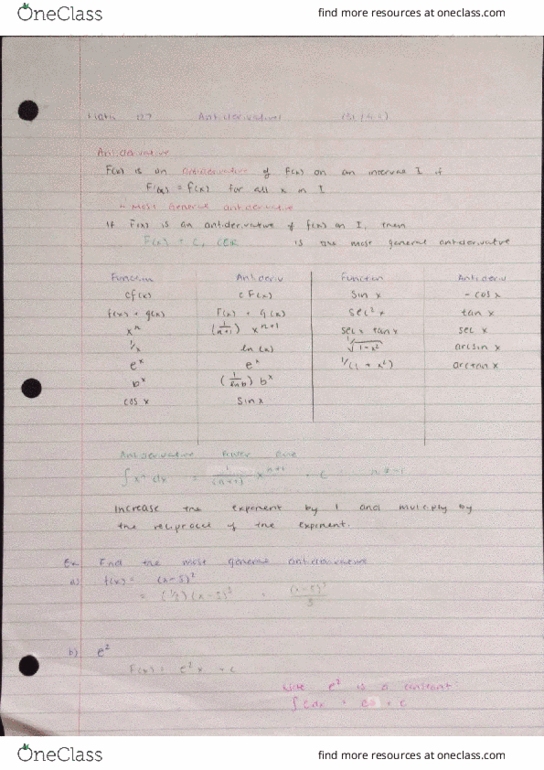 OneClass find more resources at oneclass.com
Math 127 Antiderivatives
Antiderivative
F(x) is an antiderivative of f(x) on an interval I if
F'(x) = f(x) for all x in I
Most General antiderivative
If F(x) is an antiderivative of f(x) on I, then
F(x) + C, CER is the most general antiderivative
Function Antideriv Function Antideriv
cf(x) cF(x) sin x - cos x
f(x) + g(x) F(x) + G(x) sec² x tan x
xⁿ (1/(n+1)) xⁿ⁺¹ sec x tan x sec x
1/x ln(x) 1/√(1-x²) arcsin x
eˣ eˣ 1/(1 + x²) arctan x
bˣ (1/ln b) bˣ
cos x sin x
Antiderivative Power Rule
∫xⁿ dx = 1/(n+1) xⁿ⁺¹ + C n ≠ -1
Increase the exponent by 1 and multiply by
the reciprocal of the exponent.
Ex. Find the most general antiderivative
a) f(x) = (x-5)²
= (1/3)(x-5)³ = (x-5)³/3
b) e²
F(x) = e² x + C
like e² is a constant
OneClass find more resources at oneclass.com